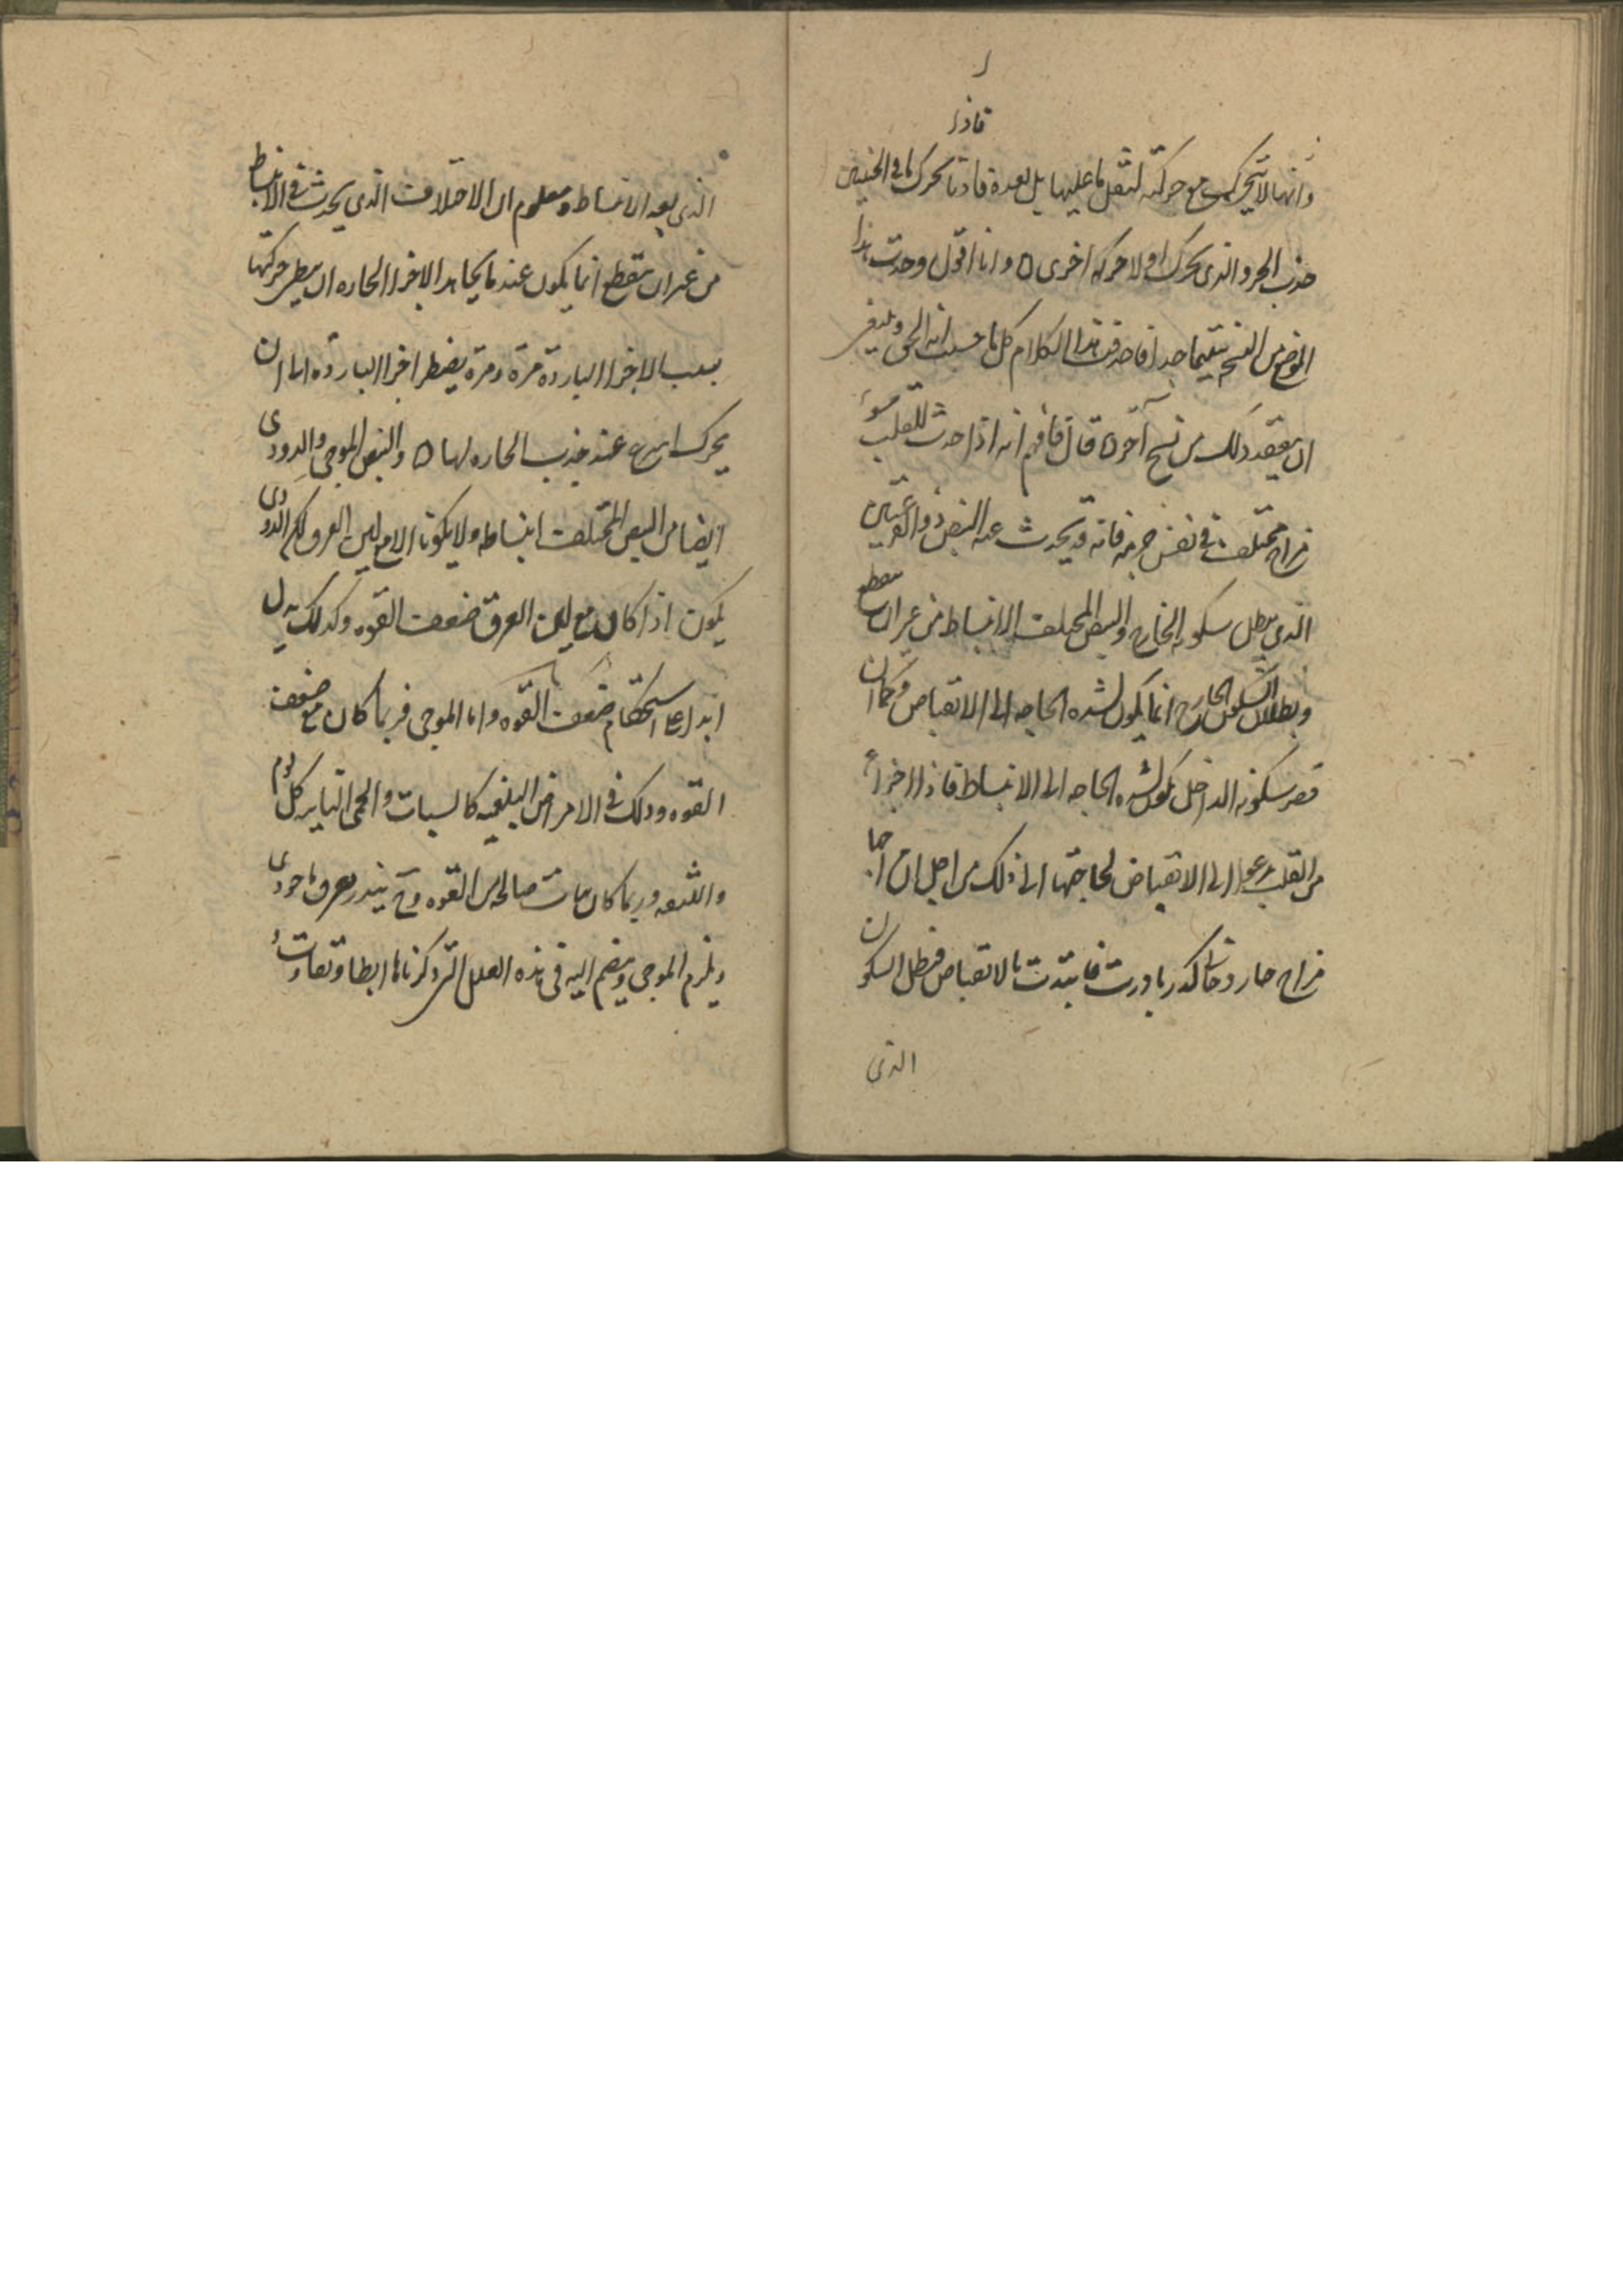 فاذا
وانها لا تتحرك مع حركته لثقل ما عليها بل بعده فاذا تحرك ما في الجنبين
جذب الجزو الذى تحرك اولا حركه اخرى ه وانا اقول وجدت هذا
الموضع من النسخ سقيما جدا فاضفت هذا الكلام كل ما حسبت انه الحق وينبغى
ان يتفقد ذلك من نسخ آخر ه قال فافهم انه اذا حدث للقلب سوء
مزاج مختلف في نفس جرمه فانه قد يحدث عنه النبض ذو القرعتين
الذى يبطل سكونه الخارج والنبض المختلف الانبساط من غير ان ينقطع
وبطلان السكون الخارج انما يكون لشده الحاجه الى الانقباض وكما ان
قصر سكونه الداخل يكون لشده الحاجه الى الانبساط فاذا اجزاء
من القلب تدعوا الى الانقباض لحاجتها الى ذلك من اجل ان بها
مزاج حار دخانى بادرت فابتدت بالانقباض فبطل السكون
الذى
الذى بعد الانبساط ومعلوم ان الاختلاف الذى يحدث في الانبساط
من غير ان ينقطع انما يكون عند ما يجاهد الاجزا الحاره ان يبطى حركتها
بسبب الاجزا البارده مرة ومرة يضطر اجزا البارده الى ان
يتحرك اسرع عند جذب الحاره لها ه والنبض الموجى والدودى
ايضا من النبض المختلف انبساطه ولا يكونا الا مع لين العرق لكن الدودى
يكون اذا كان مع لين العرق ضعف القوه وكذلك يدل
ابدا على استحكام ضعف القوه واما الموجى فربما كان مع ضعف
القوه وذلك في الامراض البلغميه كالسبات والحمى النايبه كل يوم
والليثغه وربما كان مات صالحه من القوه وح ينذر بعرق ما جودى
ويلزم الموجى وينضم اليه في هذه العلل التى ذكرناها ابطا وتفاوت